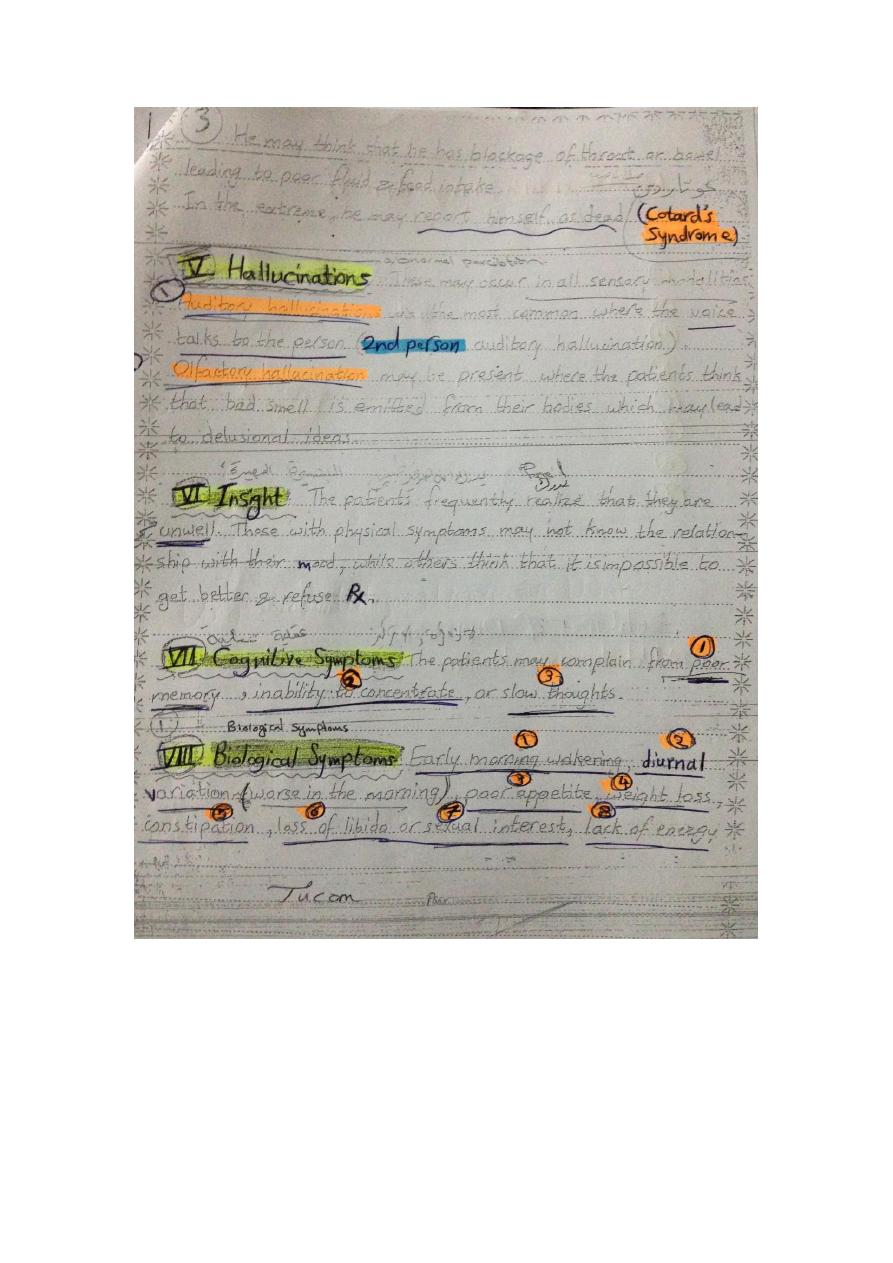 3
He may think that he has blockage of throat or bowel
leading to poor fluid & food intake.
كوتارد
In the extreme, he may report himself as dead (Cotard's
Syndrome)
V Hallucinations abnormal perception. These may occur in all sensory modalities
1 Auditory hallucinations is the most common where the voice
talks to the person (2nd person auditory hallucination).
Olfactory hallucination may be present where the patients think
that bad smell is emitted from their bodies which may lead
to delusional ideas.
VI Insight The patients frequently realize that they are
unwell. Those with physical symptoms may not know the relation-
ship with their mood, while others think that it is impossible to
get better & refuse Rx.
1
VII Cognitive Symptoms The patients may complain from poor
2 3
memory, inability to concentrate, or slow thoughts.
1 Biological Symptoms
1 2
VIII Biological Symptoms Early morning walkering, diurnal
3 4
variation (worse in the morning), poor appetite, weight loss,
5 6 7 8
constipation, loss of libido or sexual interest, lack of energy
Tucom